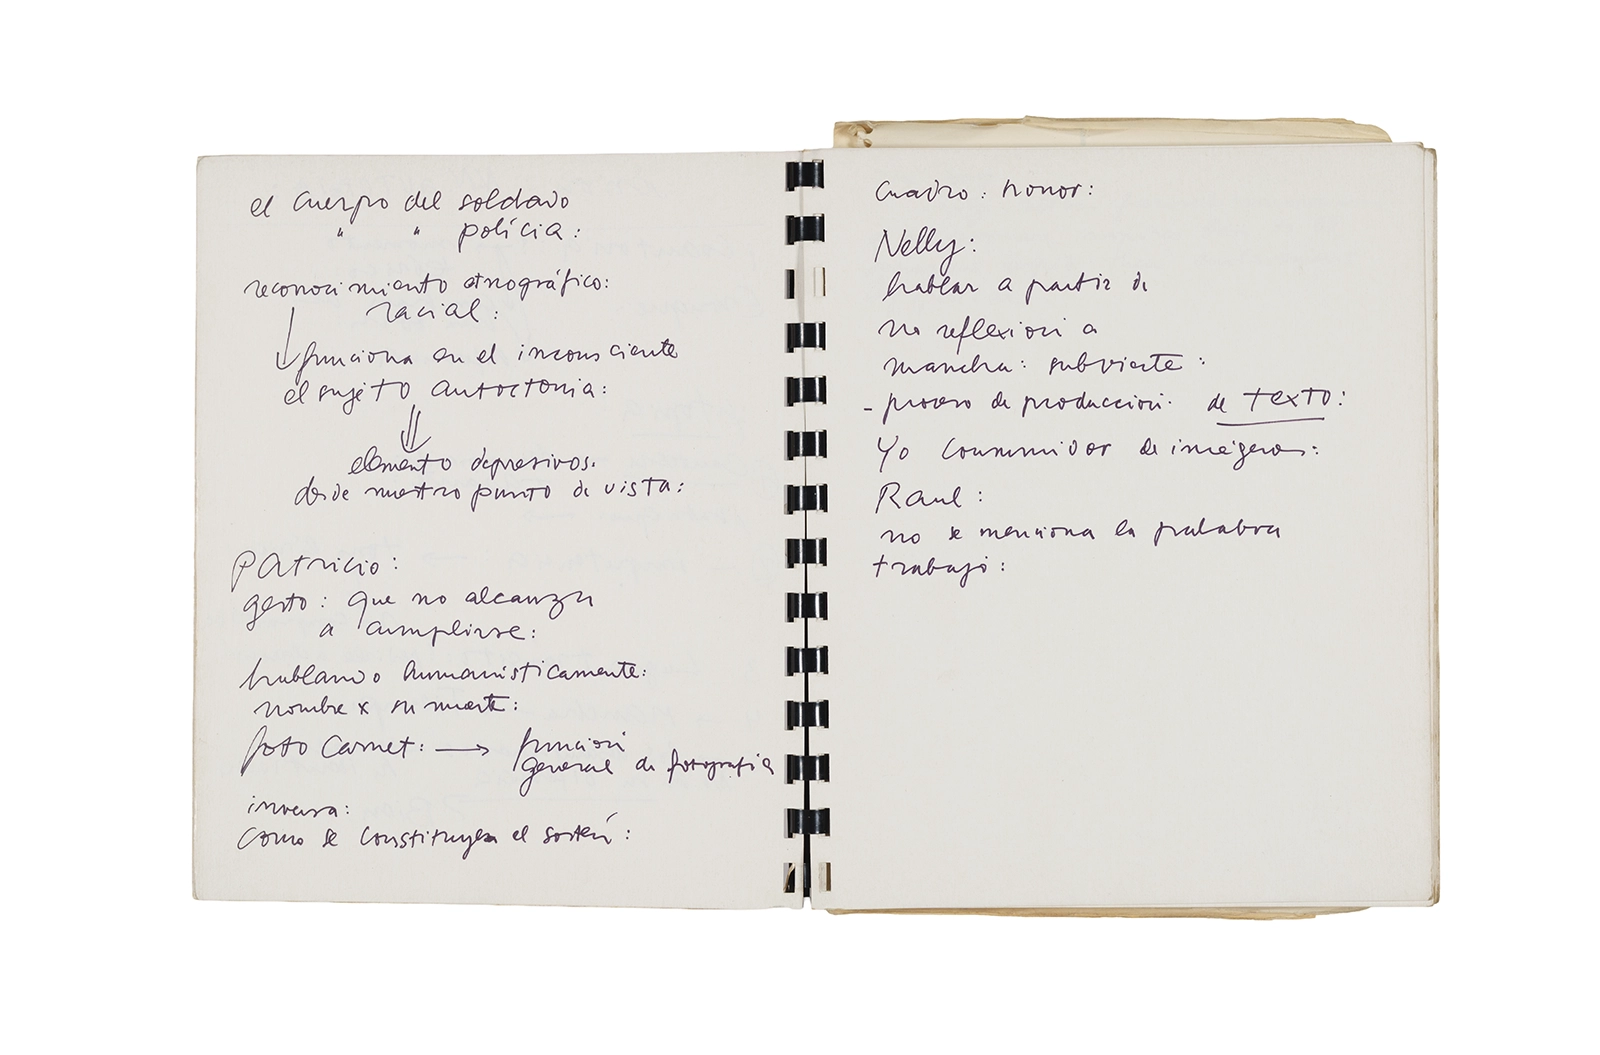 el cuerpo del soldado
" " polícia :
reconocimiento etnográfico:
racial :
funciona en el inconsciente
el sujeto autoctonia :
elemento depresivos.
desde nuestro punto de vista :
Patricio :
gesto : que no alcanza
a cumplirse :
hablando humanísticamente :
nombre x su muerte :
foto carnet : → función
general de fotografia
inversa :
como se constituyen el sostén :
cuadro : honor :
Nelly :
hablar a partir de
no reflexion a
mancha : subvierte :
- proceso de producción. de texto :
Yo consumidor de imágenes :
Raul :
no se menciona la palabra
trabajo :